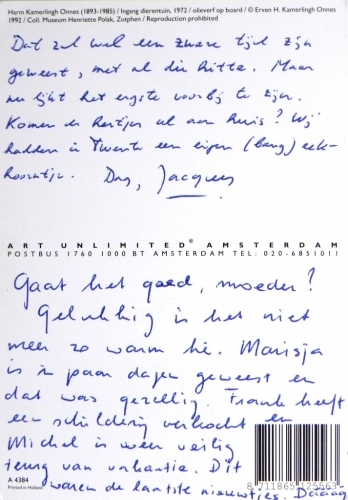 Harm Kamerlingh Onnes (1893-1985) / Ingang dierentuin, 1972 / olieverf op board / © Erven H. Kamerlingh Onnes
1992 / Coll. Museum Henriette Polak, Zutphen / Reproduction prohibited
Dat zal wel een zware tijd zijn
geweest, met al die hitte. Maar
nu lijkt het ergste voorbij te zijn.
Komen de hertjes al aan huis? Wij
hadden in Twente een eigen (bang) eek-
hoorntje. Dag, Jacques
ART UNLIMITED® AMSTERDAM
POSTBUS 1760 1000 BT AMSTERDAM TEL: 020-6851011
Gaat het goed, moeder?
Gelukkig is het niet
meer zo warm hè. Marisja
is 'n paar dagen geweest en
dat was gezellig. Frank heeft
een schilderij verkocht en
Michel is weer veilig
terug van vakantie. Dit
waren de laatste nieuwtjes. Daaag
A 4384
Printed in Holland
8 711865 125563